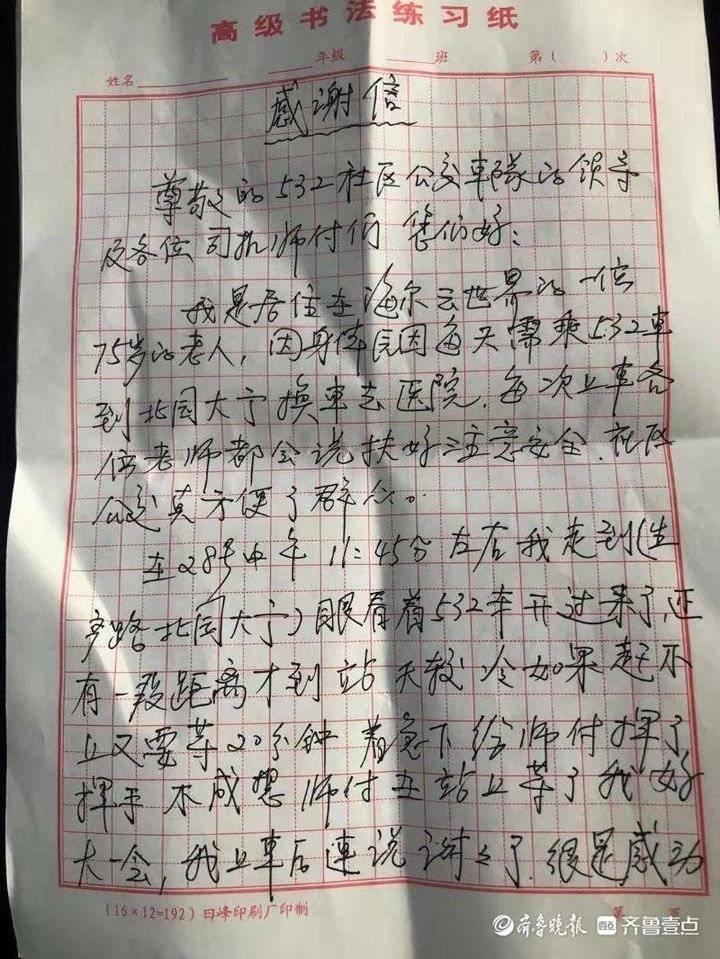 高级书法练习纸
姓名 年级 班 第( )次
感谢信
尊敬的532社区公交车队的领导
及各位司机师付们 您们好:
我是居住在海尔云世界的一位
75岁的老人,因身体原因每天需乘532车
到北园大宁换车去医院.每次上车各
位老师都会说扶好注意安全.社区
公交真方便了群众。
在28号中午11:45分左右我走到(生
产路北园大宁)眼看着532车开过来了,还
有一段距离才到站 天较冷如果赶不
上又要等20分钟 着急下给师付挥了
挥手 不成想师付在站上等了我好
大一会,我上车后连说谢谢了.很是感动
(16×12=192)日峰印刷厂印制
第 页
齐鲁晚报 齐鲁壹点